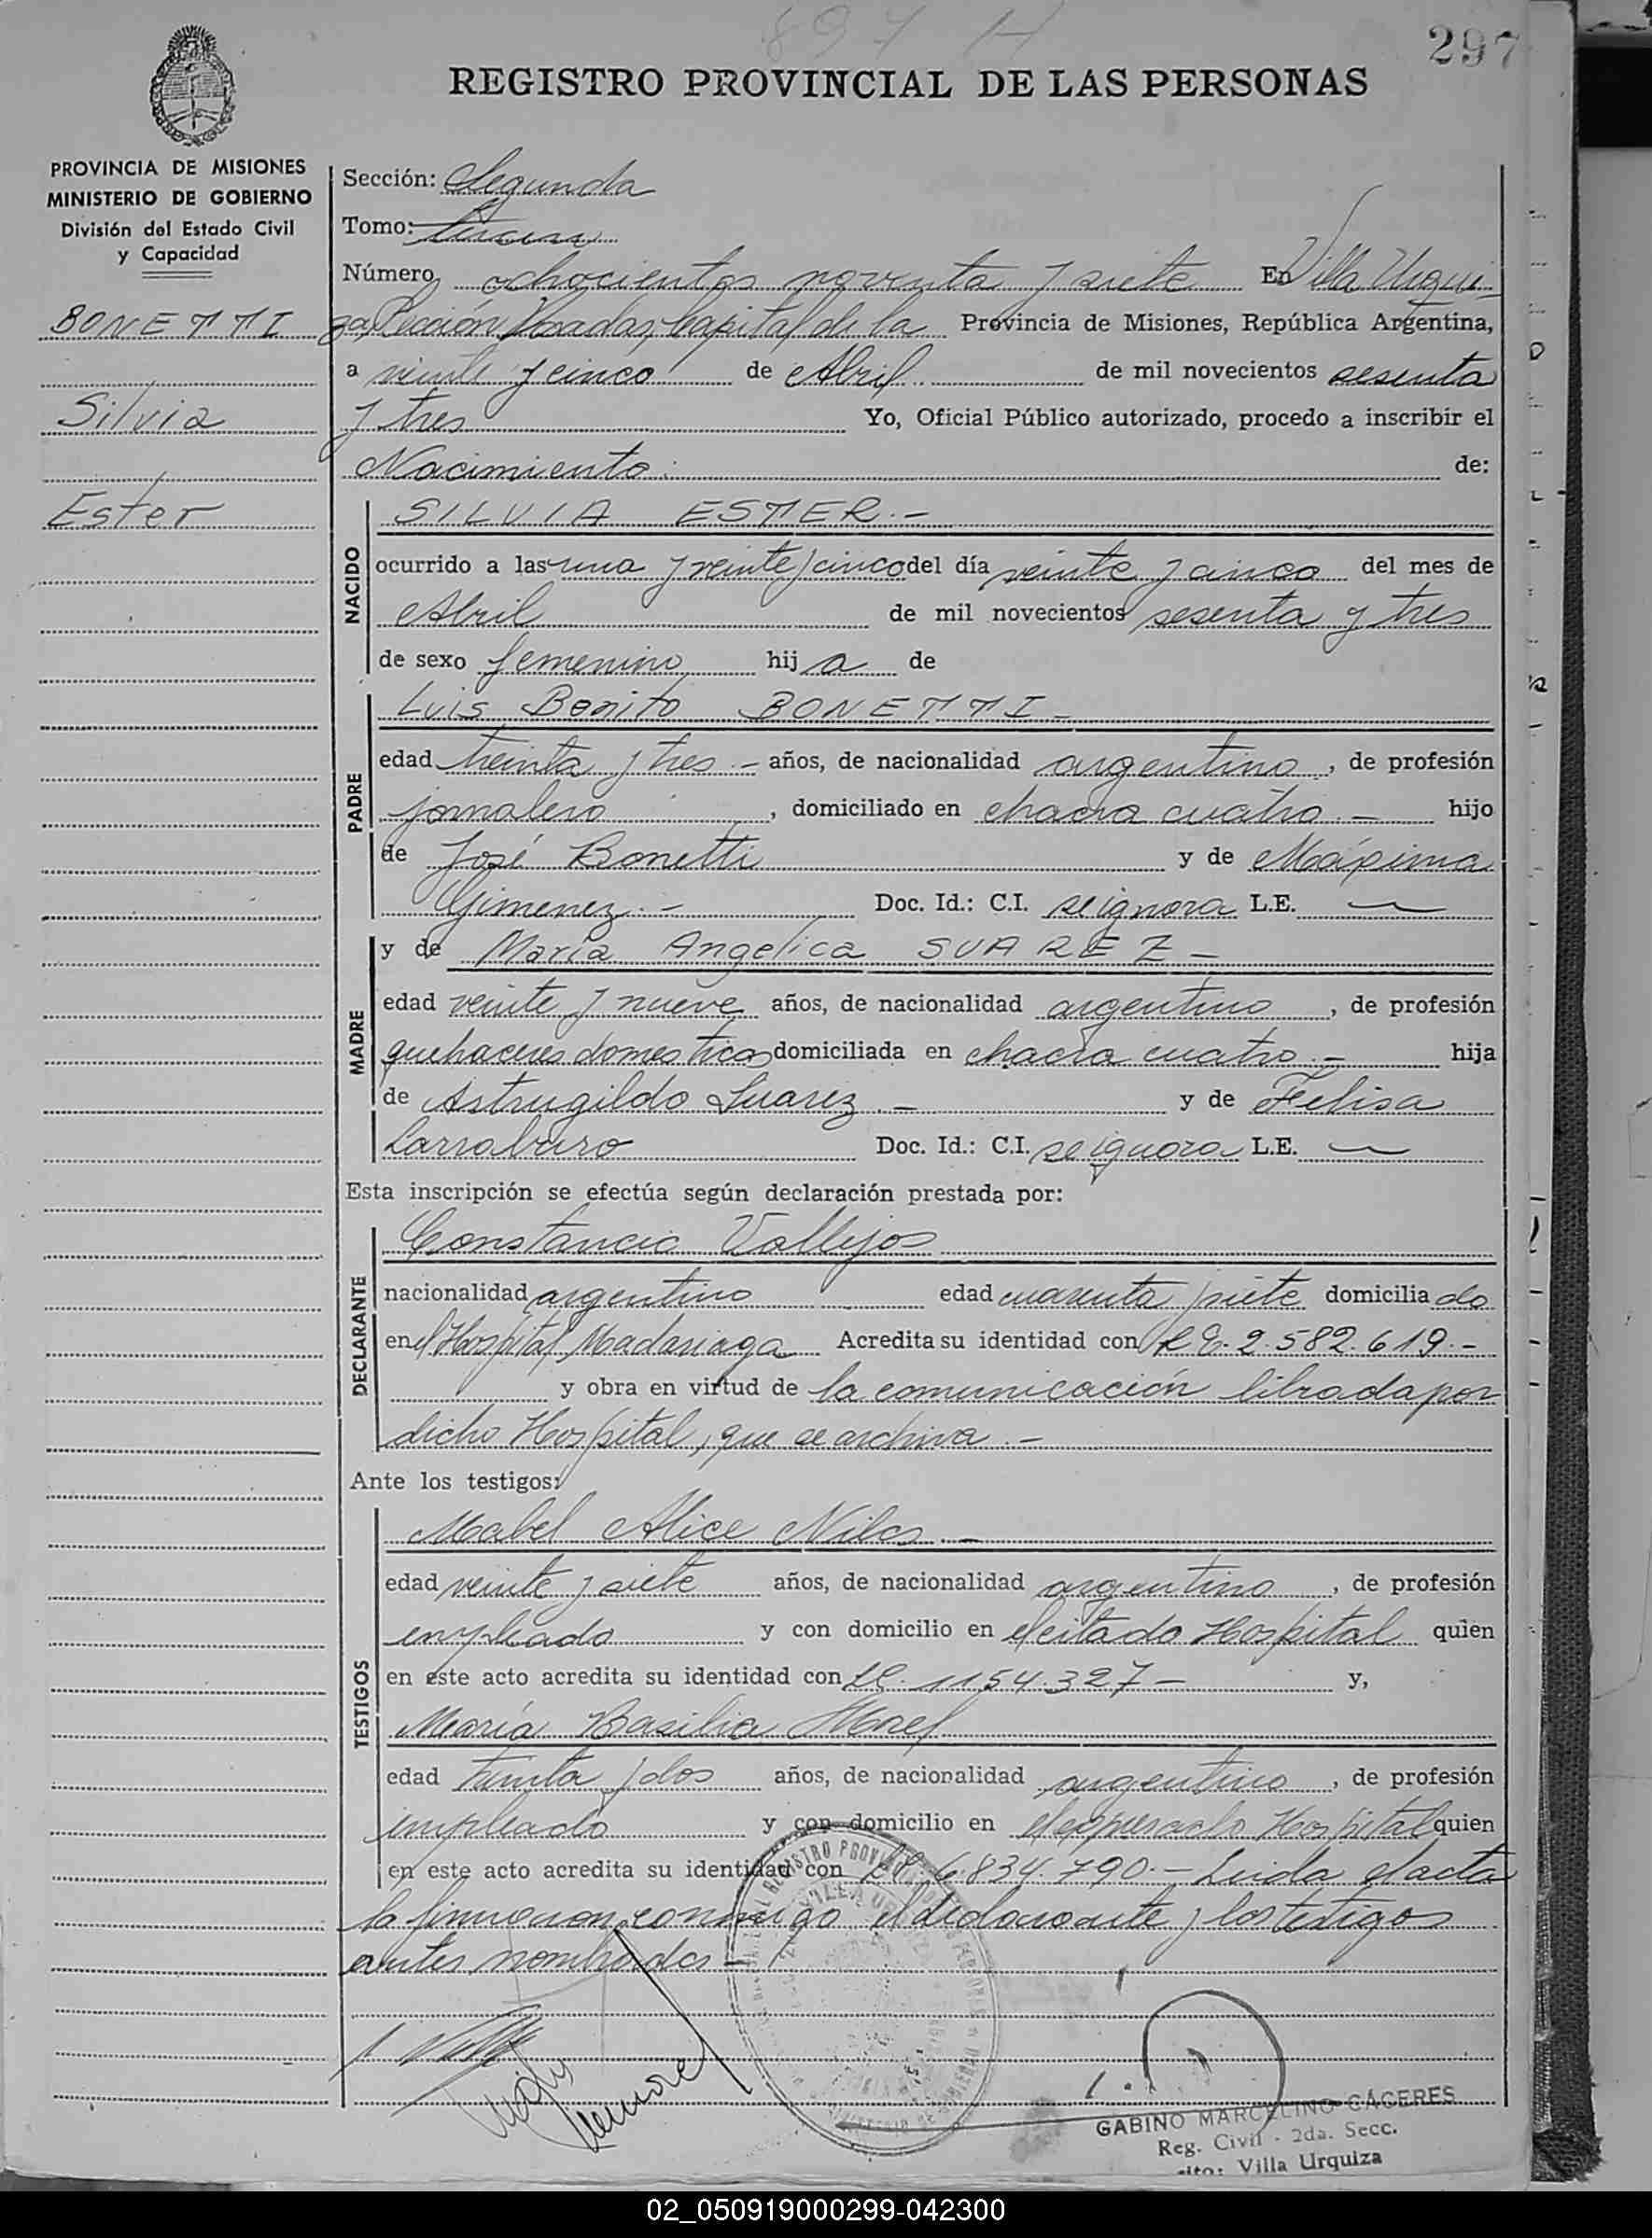 897 H
297
REGISTRO PROVINCIAL DE LAS PERSONAS
PROVINCIA DE MISIONES
MINISTERIO DE GOBIERNO
División del Estado Civil
y Capacidad
BONETTI
Silvia
Ester
Sección: Segunda
Tomo:
Número ochocientos noventa y siete En Villa Urqui-
za, Sección Posadas, Capital de la Provincia de Misiones, República Argentina,
a veinte y cinco de Abril de mil novecientos sesenta
y tres Yo, Oficial Público autorizado, procedo a inscribir el
Nacimiento de:
NACIDO
SILVIA ESTER.-
ocurrido a las una y veinte y cinco del día veinte y cinco del mes de
Abril de mil novecientos sesenta y tres
de sexo femenino hija de
PADRE
Luis Benito BONETTI-
edad treinta y tres.- años, de nacionalidad argentino, de profesión
jornalero, domiciliado en chacra cuatro.- hijo
de José Bonetti y de Máxima
Gimenez.- Doc. Id.: C.I. se ignora L.E. —
MADRE
y de María Angelica SUAREZ-
edad veinte y nueve años, de nacionalidad argentino, de profesión
quehaceres domesticos domiciliada en chacra cuatro.- hija
de Astrugildo Suarez.- y de Felisa
Larraburo Doc. Id.: C.I. se ignora L.E. —
Esta inscripción se efectúa según declaración prestada por:
DECLARANTE
Constancio Vallejos
nacionalidad argentino edad cuarenta y siete domiciliado
en el Hospital Madariaga Acredita su identidad con L.E. 2.582.619.-
y obra en virtud de la comunicación librada por
dicho Hospital, que se archiva.-
Ante los testigos:
TESTIGOS
Mabel Alice
edad veinte y siete años, de nacionalidad argentino, de profesión
empleado y con domicilio en el citado Hospital quien
en este acto acredita su identidad con LC. 1154.327- y,
María Basilia Morel
edad treinta y dos años, de nacionalidad argentino, de profesión
empleado y con domicilio en el expresado Hospital quien
en este acto acredita su identidad con LC. 6.834.790.- Leida el acta
la firmaron conmigo el declarante y los testigos
antes nombrados-
GABINO MARCELINO CÁCERES
Reg. Civil - 2da. Secc.
Villa Urquiza
02_050919000299-042300